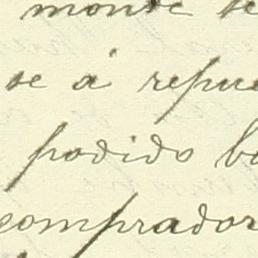 monde se
se á repue
podido ba
comprador